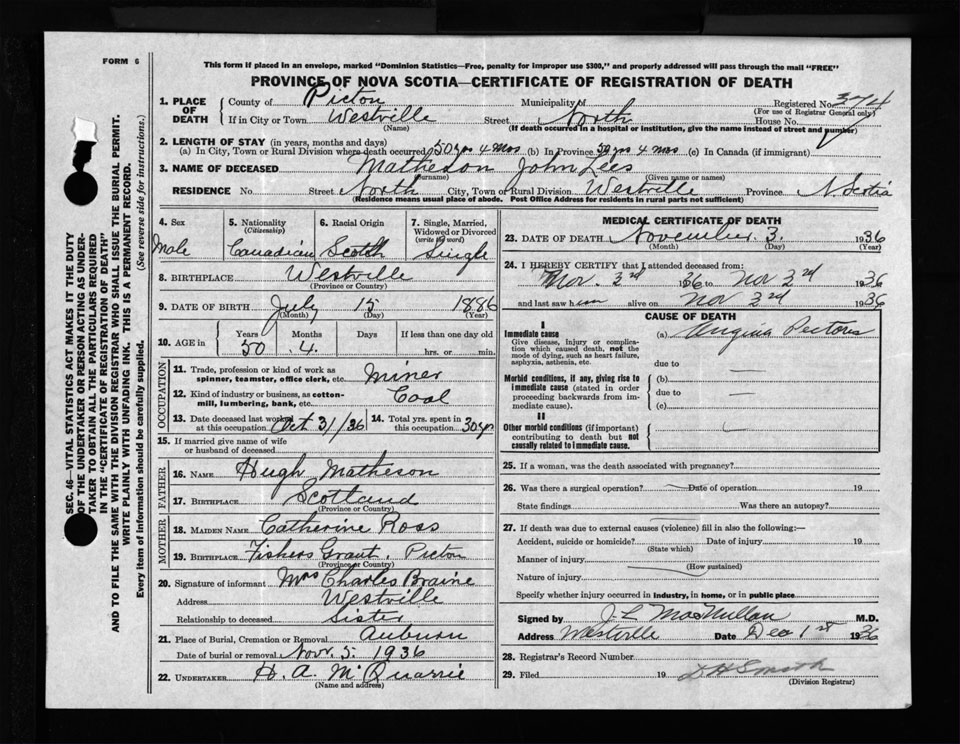 FORM 6
This form if placed in an envelope, marked "Dominion Statistics—Free, penalty for improper use $300," and properly addressed will pass through the mail "FREE"
PROVINCE OF NOVA SCOTIA—CERTIFICATE OF REGISTRATION OF DEATH
1. PLACE OF DEATH
County of Picton Municipality of Registered No. 374
(For use of Registrar General only)
If in City or Town Westville Street North House No.
(Name) (If death occurred in a hospital or institution, give the name instead of street and number)
2. LENGTH OF STAY (in years, months and days)
(a) In City, Town or Rural Division where death occurred 50 yrs 4 mos (b) In Province 50 yrs 4 mos (c) In Canada (if immigrant)
3. NAME OF DECEASED Matheson John Lees
(Surname) (Given name or names)
RESIDENCE No. Street North City, Town or Rural Division Westville Province N Scotia
(Residence means usual place of abode. Post Office Address for residents in rural parts not sufficient)
4. Sex Male
5. Nationality (Citizenship) Canadian
6. Racial Origin Scotch
7. Single, Married, Widowed or Divorced (write the word) Single
8. BIRTHPLACE Westville
(Province or Country)
9. DATE OF BIRTH July 15 1886
(Month) (Day) (Year)
10. AGE in Years 50 Months 4 Days If less than one day old hrs. or min.
OCCUPATION
11. Trade, profession or kind of work as spinner, teamster, office clerk, etc. Miner
12. Kind of industry or business, as cotton-mill, lumbering, bank, etc. Coal
13. Date deceased last worked at this occupation Oct 31/36
14. Total yrs. spent in this occupation 30 yrs
15. If married give name of wife or husband of deceased
FATHER
16. NAME Hugh Matheson
17. BIRTHPLACE Scotland
(Province or Country)
MOTHER
18. MAIDEN NAME Catherine Ross
19. BIRTHPLACE Fishers Grant, Picton
(Province or Country)
20. Signature of informant Mrs Charles Braine
Address Westville
Relationship to deceased Sister
21. Place of Burial, Cremation or Removal Auburn
Date of burial or removal Nov. 5. 1936
22. UNDERTAKER H. A. McQuarrie
(Name and address)
MEDICAL CERTIFICATE OF DEATH
23. DATE OF DEATH November 3. 1936
(Month) (Day) (Year)
24. I HEREBY CERTIFY that I attended deceased from:
Nov. 3rd 1936 to Nov 3rd 1936
and last saw him alive on Nov 3rd 1936
CAUSE OF DEATH
I
Immediate cause
Give disease, injury or complication which caused death, not the mode of dying, such as heart failure, asphyxia, asthenia, etc.
(a) Angina Pectoris
due to
Morbid conditions, if any, giving rise to immediate cause (stated in order proceeding backwards from immediate cause).
(b)
due to
(c)
II
Other morbid conditions (if important) contributing to death but not causally related to immediate cause.
25. If a woman, was the death associated with pregnancy?
26. Was there a surgical operation? Date of operation 19
State findings Was there an autopsy?
27. If death was due to external causes (violence) fill in also the following:—
Accident, suicide or homicide? Date of injury 19
(State which)
Manner of injury
(How sustained)
Nature of injury
Specify whether injury occurred in industry, in home, or in public place
Signed by J L MacMillan M.D.
Address Westville Date Dec 1st 1936
28. Registrar's Record Number
29. Filed 19 D H Smith
(Division Registrar)
SEC. 46—VITAL STATISTICS ACT MAKES IT THE DUTY
OF THE UNDERTAKER OR PERSON ACTING AS UNDER-
TAKER TO OBTAIN ALL THE PARTICULARS REQUIRED
IN THE "CERTIFICATE OF REGISTRATION OF DEATH"
AND TO FILE THE SAME WITH THE DIVISION REGISTRAR WHO SHALL ISSUE THE BURIAL PERMIT.
WRITE PLAINLY WITH UNFADING INK. THIS IS A PERMANENT RECORD.
Every item of information should be carefully supplied. (See reverse side for instructions.)